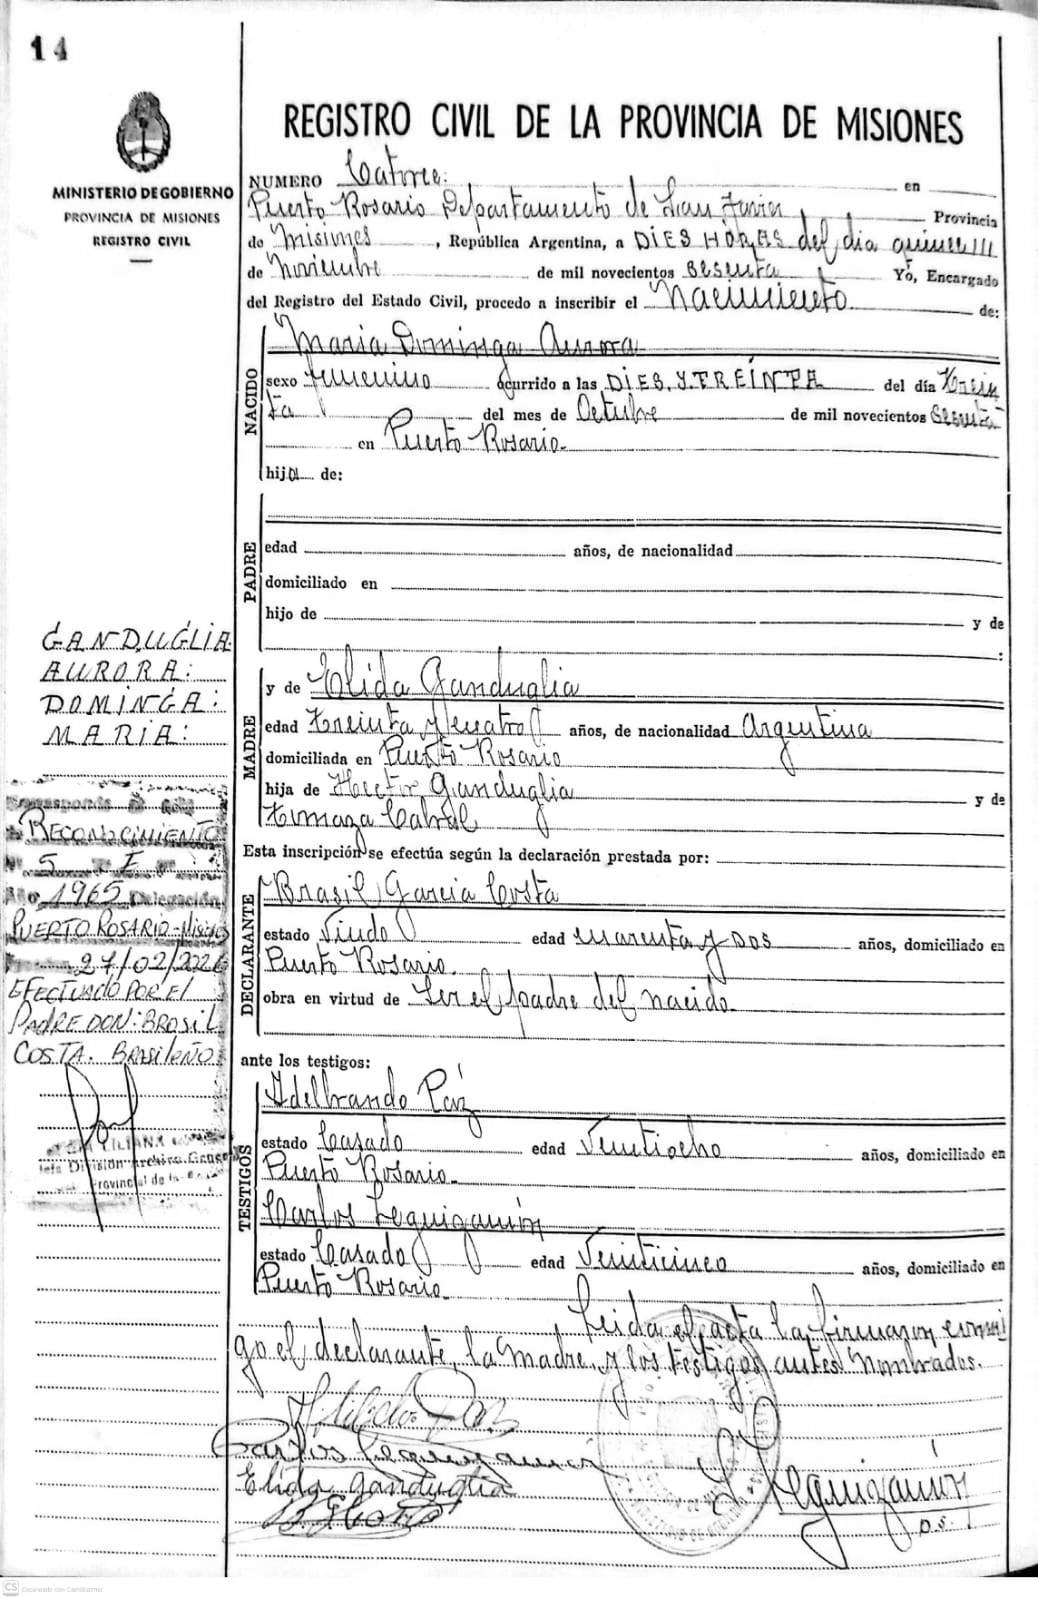 14
MINISTERIO DE GOBIERNO
PROVINCIA DE MISIONES
REGISTRO CIVIL
REGISTRO CIVIL DE LA PROVINCIA DE MISIONES
NUMERO Catorce: en
Puerto Rosario Departamento de San Javier Provincia
de Misiones, República Argentina, a DIES HORAS del dia quince
de Noviembre de mil novecientos sesenta Yo, Encargado
del Registro del Estado Civil, procedo a inscribir el Nacimiento de:
NACIDO
Maria Dominga Aurora
sexo femenino ocurrido a las DIES Y TREINTA del día trein
ta del mes de Octubre de mil novecientos sesenta
en Puerto Rosario.
hija de:
PADRE
edad años, de nacionalidad
domiciliado en
hijo de y de
:
MADRE
y de Elida Ganduglia
edad treinta y cuatro años, de nacionalidad Argentina
domiciliada en Puerto Rosario
hija de Hector Ganduglia y de
Tomaza Cabral
Esta inscripción se efectúa según la declaración prestada por:
DECLARANTE
Brasil Garcia Costa
estado Viudo edad cuarenta y dos años, domiciliado en
Puerto Rosario.
obra en virtud de Ser el padre del nacido.
ante los testigos:
TESTIGOS
Idelbrando Paz
estado Casado edad Veintiocho años, domiciliado en
Puerto Rosario.
Carlos Leguizamón
estado Casado edad Veinticinco años, domiciliado en
Puerto Rosario.
Leida el acta la firmaron conmi
go el declarante, la madre, y los testigos antes nombrados.
Carlos Leguizamón
Elida Ganduglia
B. G Costa
Leguizamón
GANDUGLIA
AURORA:
DOMINGA:
MARIA:
Corresponde
RECONOCIMIENTO
Nº 5 T I
Año 1965 Delegación
PUERTO ROSARIO-Misiones
27/02/202
EFECTUADO POR El
PADRE DON: BRASIL
COSTA. BRASILEÑO
LILIANA
Jefa División Archivo General
Provincial de la
CS Escaneado con CamScanner